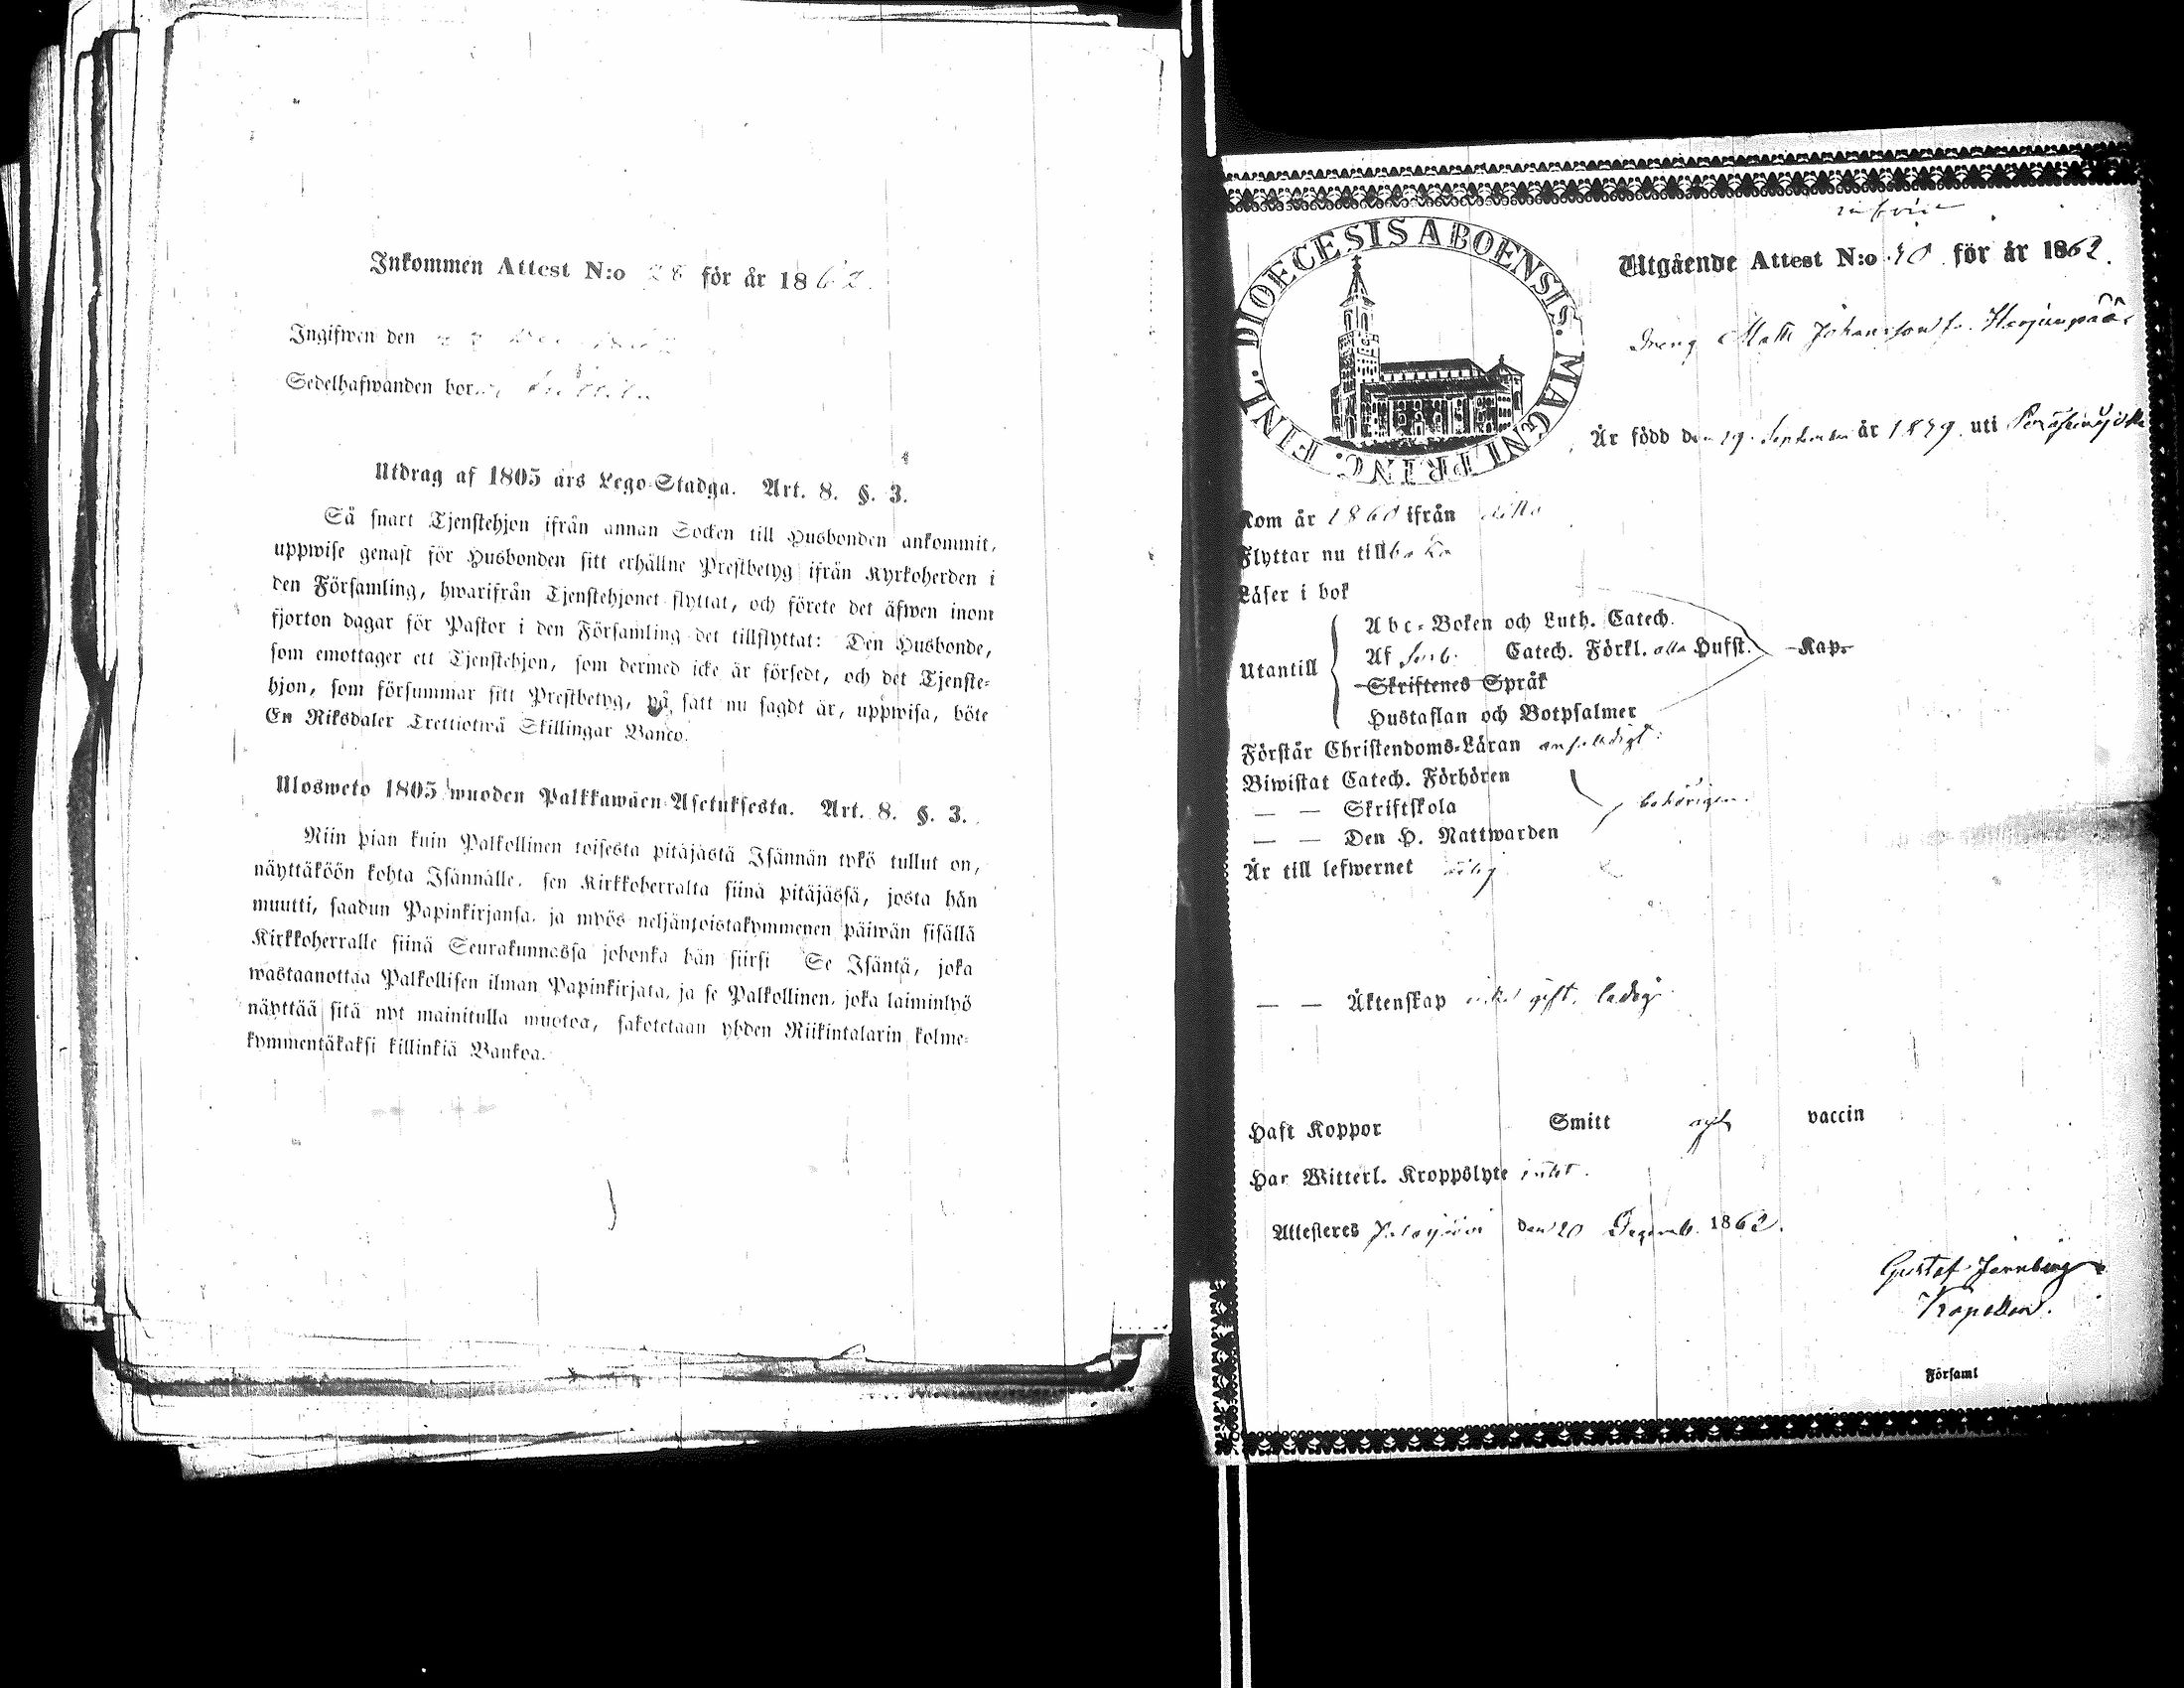 Inkommen Attest N:o 28 för år 1862.
Ingifwen den
Sedelhafwanden bor
Utdrag af 1805 års Lego-Stadga. Art. 8. §. 3.
Så snart Tjenstehjon ifrån annan Socken till Husbonden ankommit,
uppwise genast för Husbonden sitt erhållne Prestbetyg ifrån Kyrkoherden i
den Församling, hwarifrån Tjenstehjonet flyttat, och förete det äfwen inom
fjorton dagar för Pastor i den Församling det tillflyttat: Den Husbonde,
som emottager ett Tjenstehjon, som dermed icke är försedt, och det Tjenste-
hjon, som försummar sitt Prestbetyg, på sätt nu sagdt är, uppwisa, böte
En Riksdaler Trettiotwå Skillingar Banco.
Ulosweto 1805 wuoden Palkkawäen-Asetuksesta. Art. 8. §. 3.
Niin pian kuin Palkollinen toisesta pitäjästä Isännän tykö tullut on,
näyttäköön kohta Isännälle, sen Kirkkoherralta siinä pitäjässä, josta hän
muutti, saadun Papinkirjansa, ja myös neljäntoistakymmenen päiwän sisällä
Kirkkoherralle siinä Seurakunnassa johonka hän siirsi Se Isäntä, joka
wastaanottaa Palkollisen ilman Papinkirjata, ja se Palkollinen, joka laiminlyö
näyttää sitä nyt mainitulla muotoa, sakotetaan yhden Riikintalarin kolme-
kymmentäkaksi killinkiä Bankoa.
DIOECESIS ABOENSIS. MAGNI PRINC. FINL.
Utgående Attest N:o 40 för år 1862.
Dreng Matts Johansson Harjunpää
Är född den 19 September år 1839 uti
Kom år 1860 ifrån ditto
Flyttar nu tillbaka
Läser i bok
Utantill
Abc-Boken och Luth. Catech.
Af Catech. Förkl. alla Hufst. Kap.
Skriftenes Språk
Hustaflan och Botpsalmer
Förstår Christendoms-Läran enfaldigt
Biwistat Catech. Förhören
— — Skriftskola behörigen.
— — Den H. Nattwarden
Är till lefwernet
— — Äktenskap gift, ledig
Haft Koppor Smitt vaccin
Har Witterl. Kroppslyte intet.
Attesteres Jalasjärvi den 20 Decemb. 1862.
Gustaf
Kapellan.
Församl